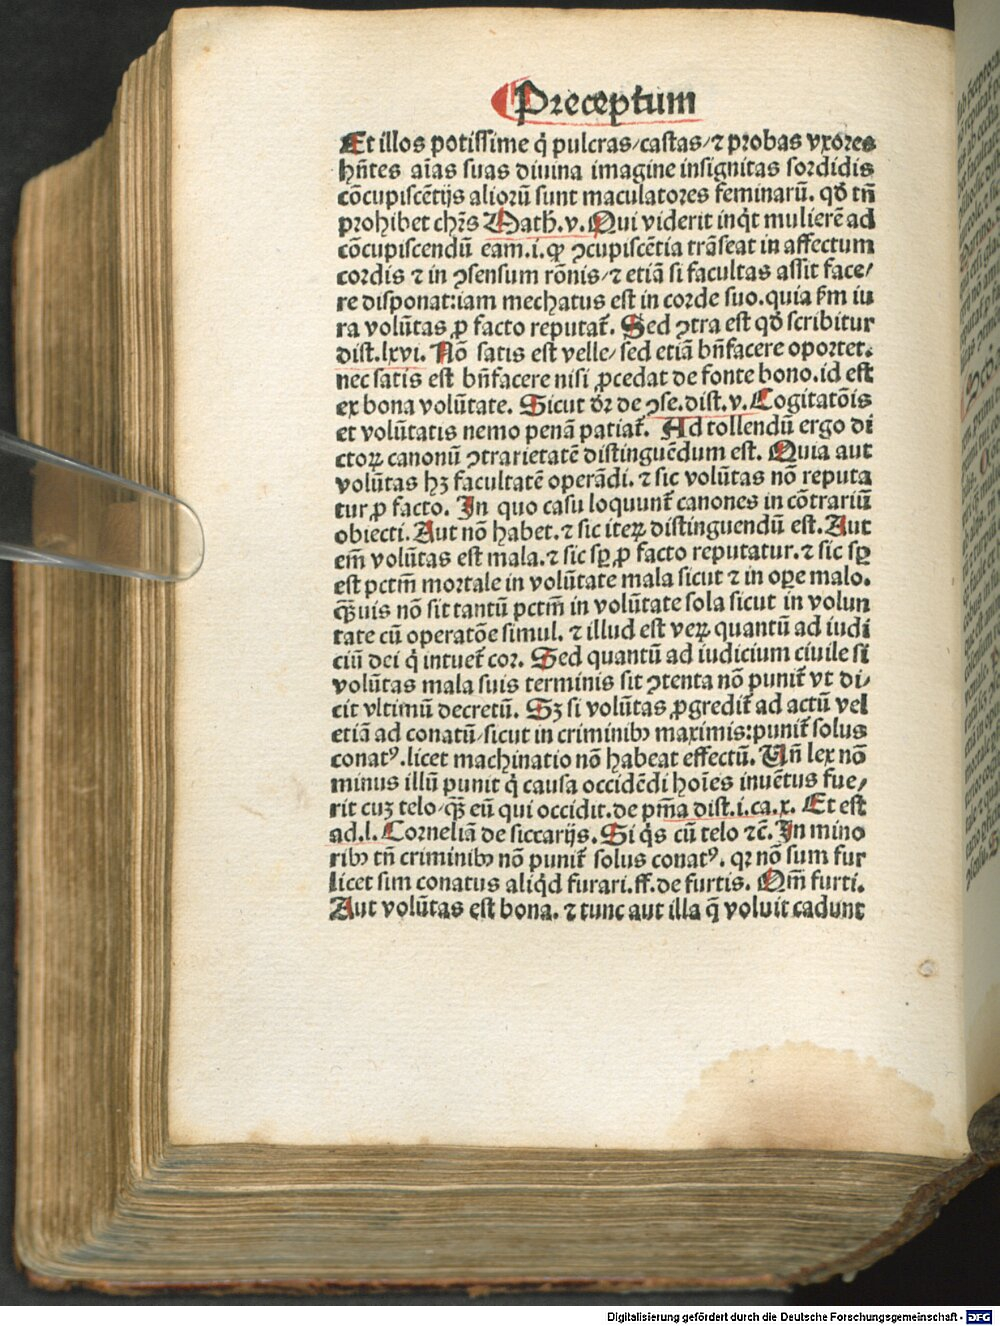 Preceptum
Et illos potissime q̇ pulcras/castas/⁊ probas vxores
hn̄tes aīas suas diuina imagine insignitas sordidis
cōcupiscētijs aliorū sunt maculatores feminarū. qď tn̄
prohibet chr̄s Math.v. Qui viderit inq̇t mulierē ad
cōcupiscendū eam.i.ꝙ ꝯcupiscētia trāseat in affectum
cordis ⁊ in ꝯsensum rōnis/⁊ etiā si facultas assit face/
re disponat:iam mechatus est in corde suo.quia ẜm iu
ra volūtas ꝓ facto reputat̄. Sed ꝯtra est qď scribitur
dist.lxvi. Nō satis est velle/sed etiā bn̄facere oportet.
nec satis est bn̄facere nisi ꝓcedat de fonte bono.id est
ex bona volūtate. Sicut dr̄ de ꝯse.dist.v. Cogitatōis
et volūtatis nemo penā patiat̄. Ad tollendū ergo di
ctoꝝ canonū ꝯtrarietatē distinguēdum est. Quia aut
volūtas hꝫ facultatē operādi. ⁊ sic volūtas nō reputa
tur ꝓ facto. In quo casu loquunt̄ canones in cōtrariū
obiecti. Aut nō habet. ⁊ sic iteꝝ distinguendū est. Aut
em̄ volūtas est mala. ⁊ sic sꝑ ꝓ facto reputatur. ⁊ sic sꝑ
est pctm̄ mortale in volūtate mala sicut ⁊ in oꝑe malo.
Qͣuis nō sit tantū pctm̄ in volūtate sola sicut in volun
tate cū operatōe simul. ⁊ illud est veꝝ quantū ad iudi
ciū dei q̇ intuet̄ cor. Sed quantū ad iudicium ciuile si
volūtas mala suis terminis sit ꝯtenta nō punit̄ vt di/
cit vltimū decretū. Sꝫ si volūtas ꝓgredit̄ ad actū vel
etiā ad conatū/sicut in criminibꝰ maximis:punit̄ solus
conatꝰ.licet machinatio nō habeat effectū. Vn̄ lex nō
minus illū punit q̇ causa occidēdi hoīes inuētus fue/
rit cuꝫ telo/qͣꝫ eū qui occidit.de pm̄a dist.i.ca.x. Et est
ad.l. Corneliā de siccarijs. Si q̇s cū telo ⁊c̄. In mino
ribꝰ tn̄ criminibꝰ nō punit̄ solus conatꝰ. qꝛ nō sum fur
licet sim conatus aliq̇d furari.ff.de furtis. Om̄ furti.
Aut volūtas est bona. ⁊ tunc aut illa q̄ voluit cadunt
Digitalisierung gefördert durch die Deutsche Forschungsgemeinschaft - DFG